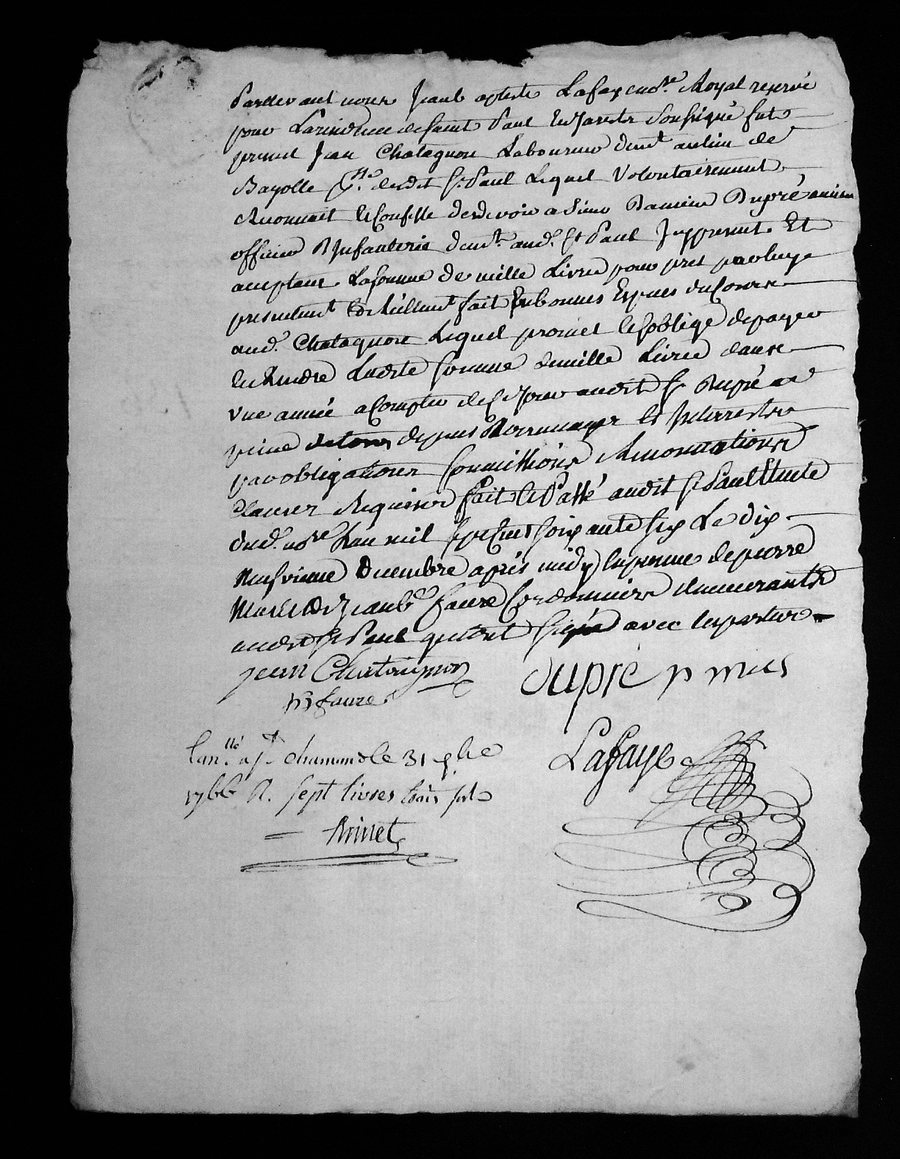 Pardevant nous Jean baptiste Lafaye no.re Royal reservé
pour La residence de saint Paul En Jarest Soussigné fut
present Jean Chatagnon Laboureur dem.t au lieu de
Bayolle p.sse dudit St Paul Lequel Volontairement
Reconnoit et Confesse devoir a Sieur Damien Dupré ancien
officier D'Infanterie dem.t aud. St Paul Icy present Et
acceptant La somme de mille Livres pour pret par luy
presentement et Reellement fait En bonnes Especes du Cours
aud. Chatagnon Lequel promet et s'oblige de payer
et Rendre Ladite somme de mille Livres dans
une année a Compter de ce Jour audit Sr Dupré a
peine de tous depens Dommages et Interrests
par obligations soumissions Renonciations
Clauses Requises fait et Passé audit St Paul Etude
dud. no.re L'an mil sept Cent soixante six Le dix
Neufvieme Decembre après midy En presence de pierre
et Jean b.te faure Cordonniers demeurants
audit St Paul qui ont signé avec les parties
jean Chataignon
dupré
faure
Lafaye
Con.llé a St chamond le 31 xbre
1766 R. sept livres trois sols
Rimet